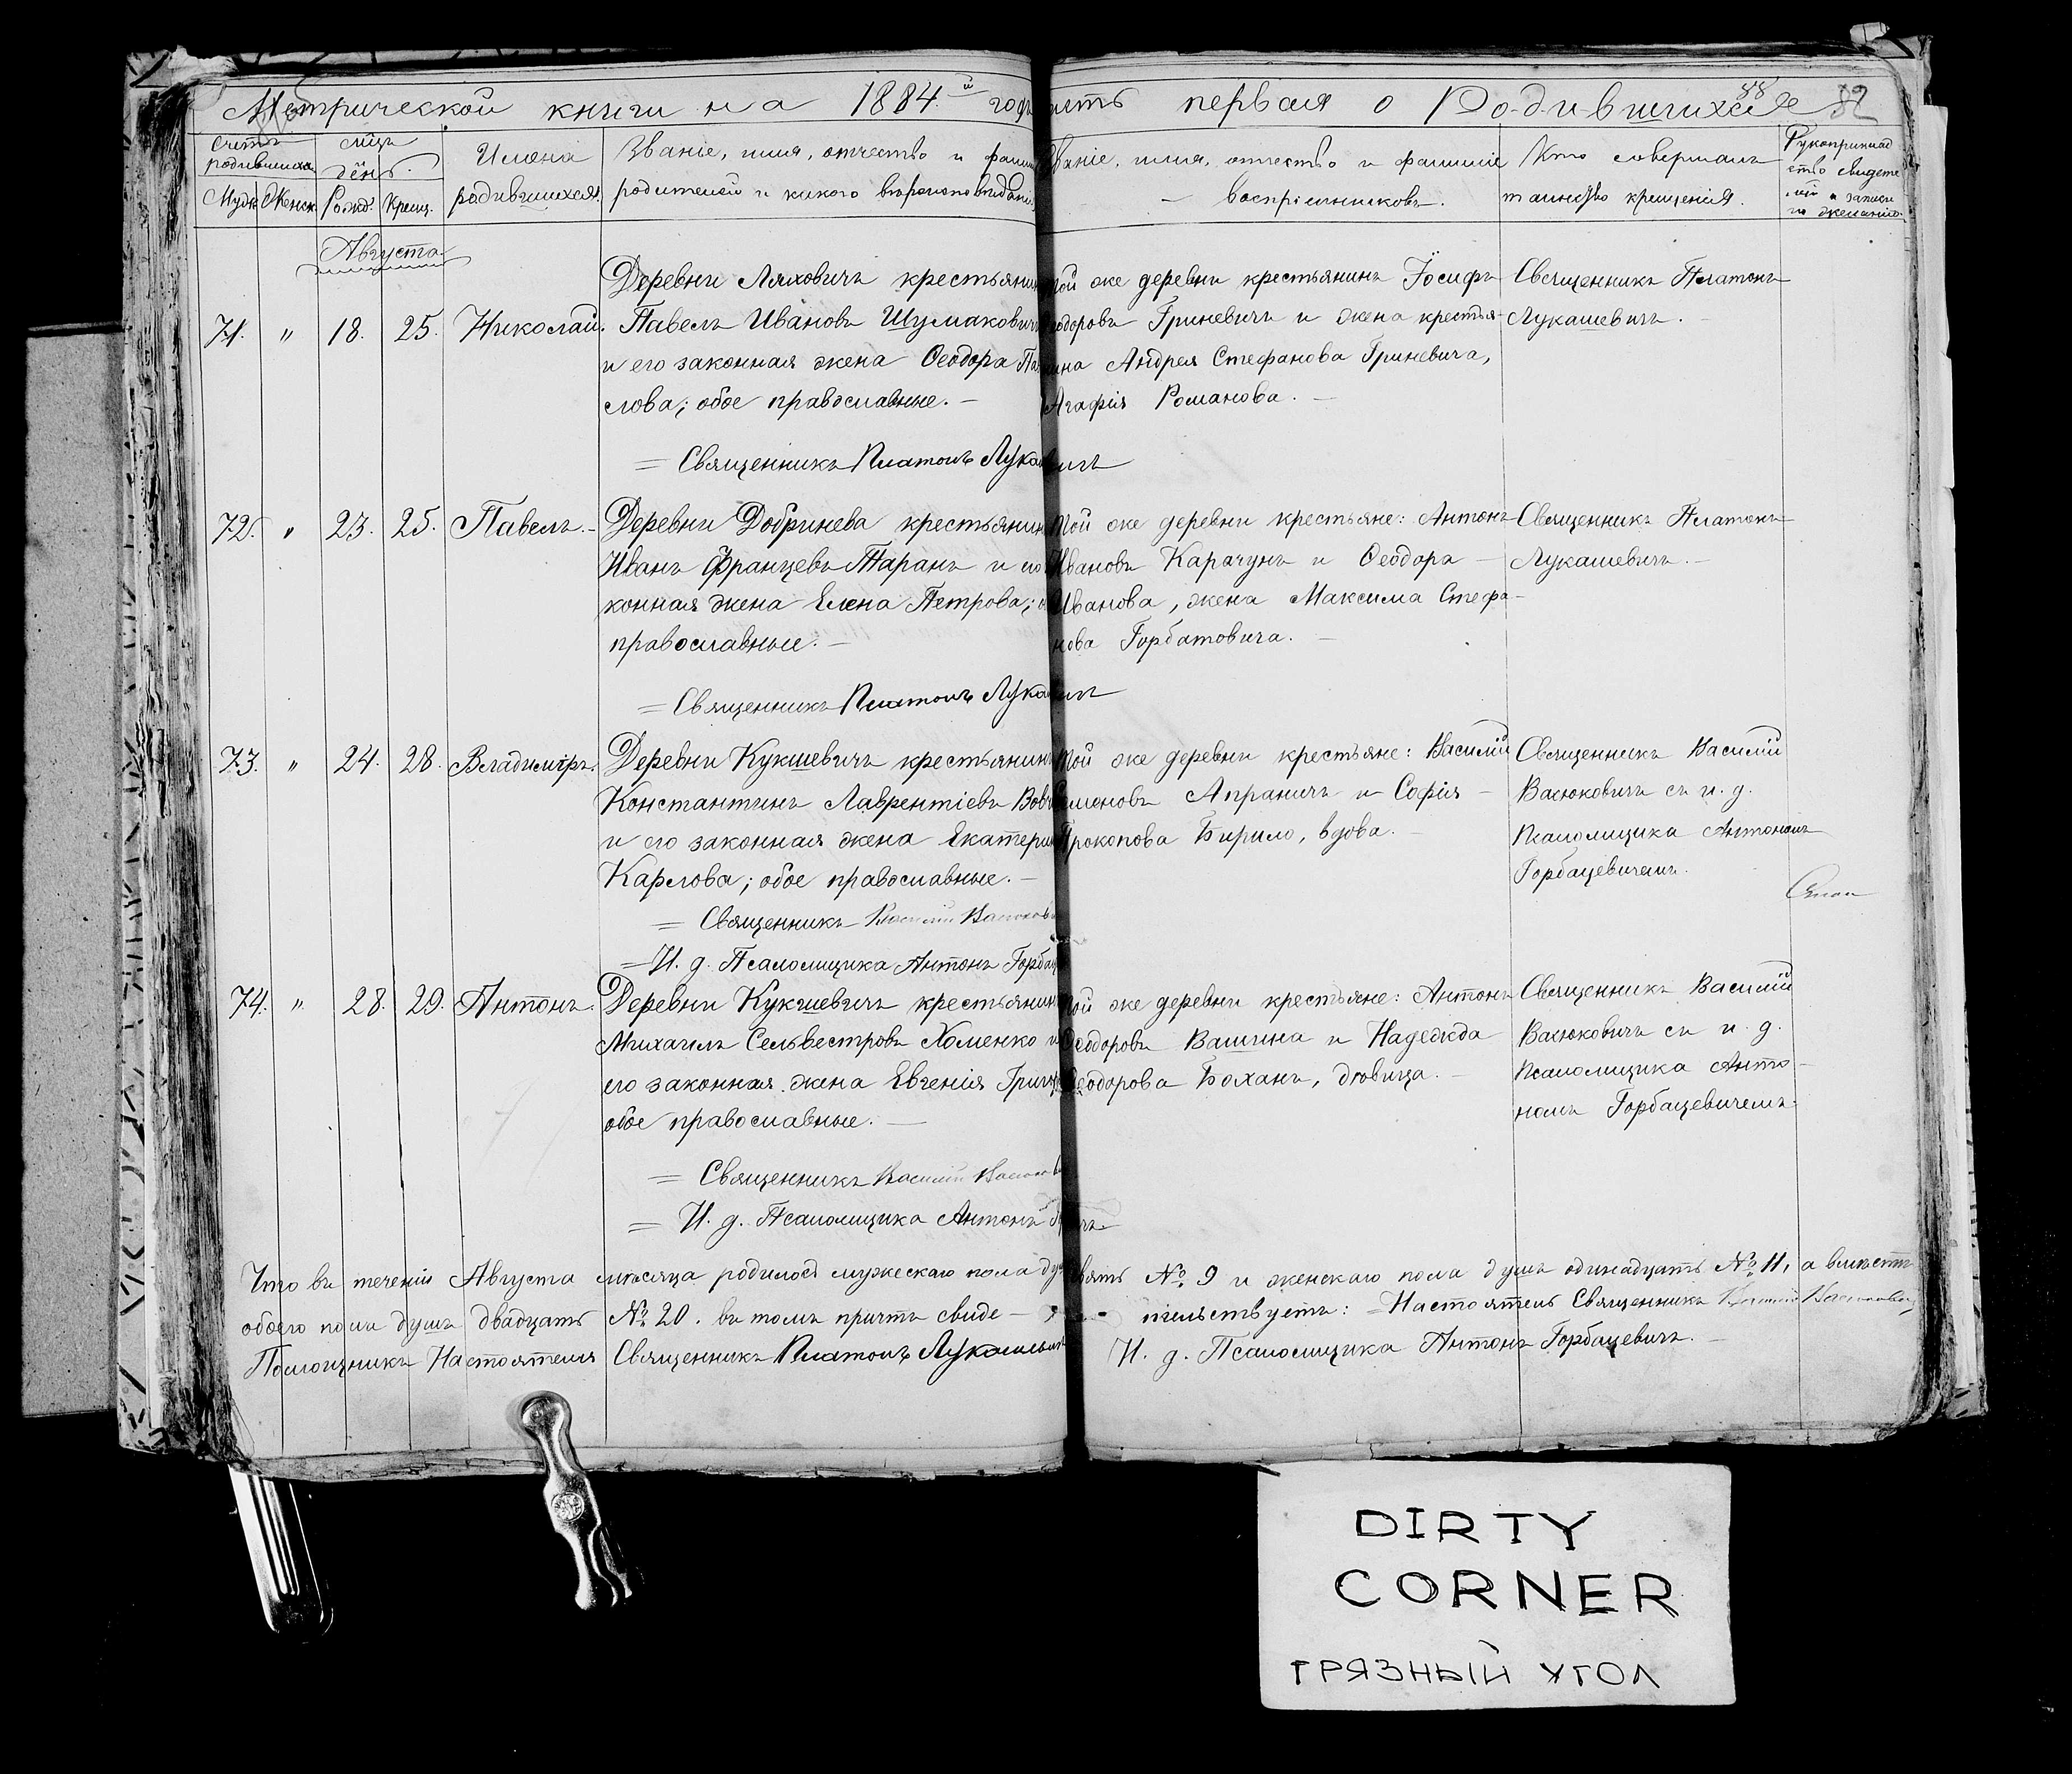 Метрической книги на 1884й
первая о Родившихся
88 82
счетъ родившихся
мѣсяцъ день
Имена родившихся
Званіе, имя, отчество и
родителей и какого вѣроисповѣданія
Званіе, имя, отчество и фамилія
воспріемниковъ.
Кто совершалъ
таинство крещенія.
Рукоприклад
ство свидете
лей о записи
по желанію.
Муж. Женск. Рожд. Крещ.
Августа
71. " 18. 25. Николай.
Деревни Ляховичъ крестьянинъ
Павелъ Ивановъ Шумаковичъ
и его законная жена Ѳеодора
слова; обое православные. —
той же деревни крестьянинъ Іосифъ
Ѳеодоровъ Гриневичъ и жена крестья-
нина Андрея Стефанова Гриневича,
Агафія Романова. —
Священникъ Платонъ
Лукашевичъ. —
= Священникъ Платонъ Лукашевичъ
72. " 23. 25. Павелъ. —
Деревни Добринева крестьянинъ
Иванъ Францевъ Таранъ и
конная жена Елена Петрова;
православные. —
той же деревни крестьяне: Антонъ
Ивановъ Карачунъ и Ѳеодора —
Иванова, жена Максима Стефа-
нова Горбатовича. —
Священникъ Платонъ
Лукашевичъ. —
= Священникъ Платонъ Лукашевичъ
73. " 24. 28. Владимиръ.
Деревни Кукшевичъ крестьянинъ
Константинъ Лаврентіевъ
и его законная жена Екатерина
Карлова; обое православные. —
той же деревни крестьяне: Василій
Апраничъ и Софія —
Прокопова Бирило, вдова. —
Священникъ Василій
Васюковичъ съ и. д.
псаломщика Антономъ
Горбацевичемъ.
= Священникъ Василій
= И. д. Псаломщика Антонъ
74. " 28. 29. Антонъ.
Деревни Кукшевичъ крестьянинъ
Михаилъ Сельвестровъ Хоменко и
его законная жена Евгенія
обое православные. —
той же деревни крестьяне: Антонъ
Ѳеодоровъ Вашина и Надежда
Ѳеодорова Боханъ, дѣвица. —
Священникъ Василій
Васюковичъ съ и. д.
псаломщика Анто-
номъ Горбацевичемъ.
= Священникъ Василій
= И. д. Псаломщика Антонъ
Что въ теченіи Августа мѣсяца родилось мужескаго пола № 9 и женскаго пола душъ одинадцать № 11, а вместѣ
обоего пола душъ двадцать № 20. въ томъ причтъ свиде — тельствуетъ: Настоятель Священникъ Василій
Помощникъ Настоятеля Священникъ Платонъ Лукашевичъ И. д. Псаломщика Антонъ Горбацевичъ. —
DIRTY
CORNER
ГРЯЗНЫЙ УГОЛ